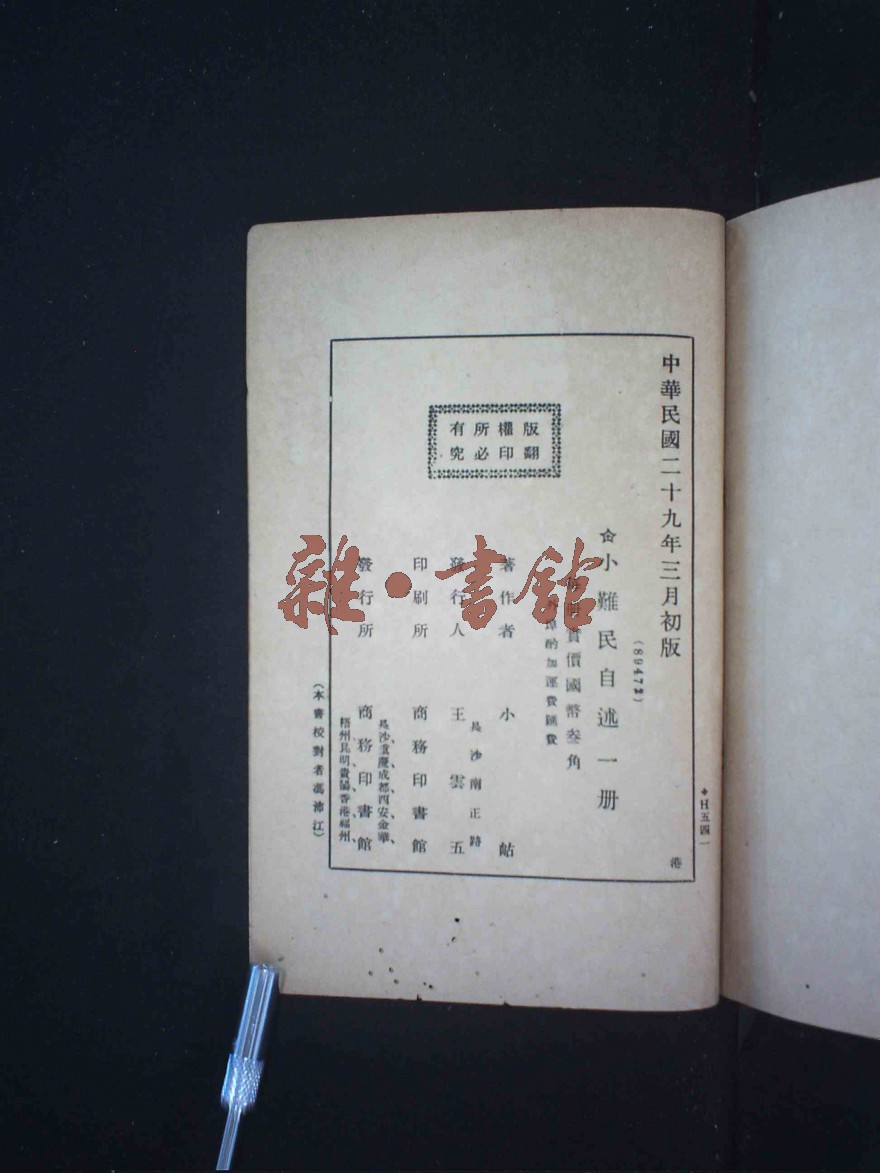 中華民國二十九年三月初版
小難民自述一冊
實價國幣叁角
酌加運費匯費
版權所有
翻印必究
著作者 小 岵
發行人 王雲五
長沙南正路
印刷所 商務印書館
發行所 商務印書館
長沙、重慶、成都、西安、金華、
梧州、昆明、貴陽、香港、福州、
(本書校對者馮沛江)
H五四一
港
雜·書館